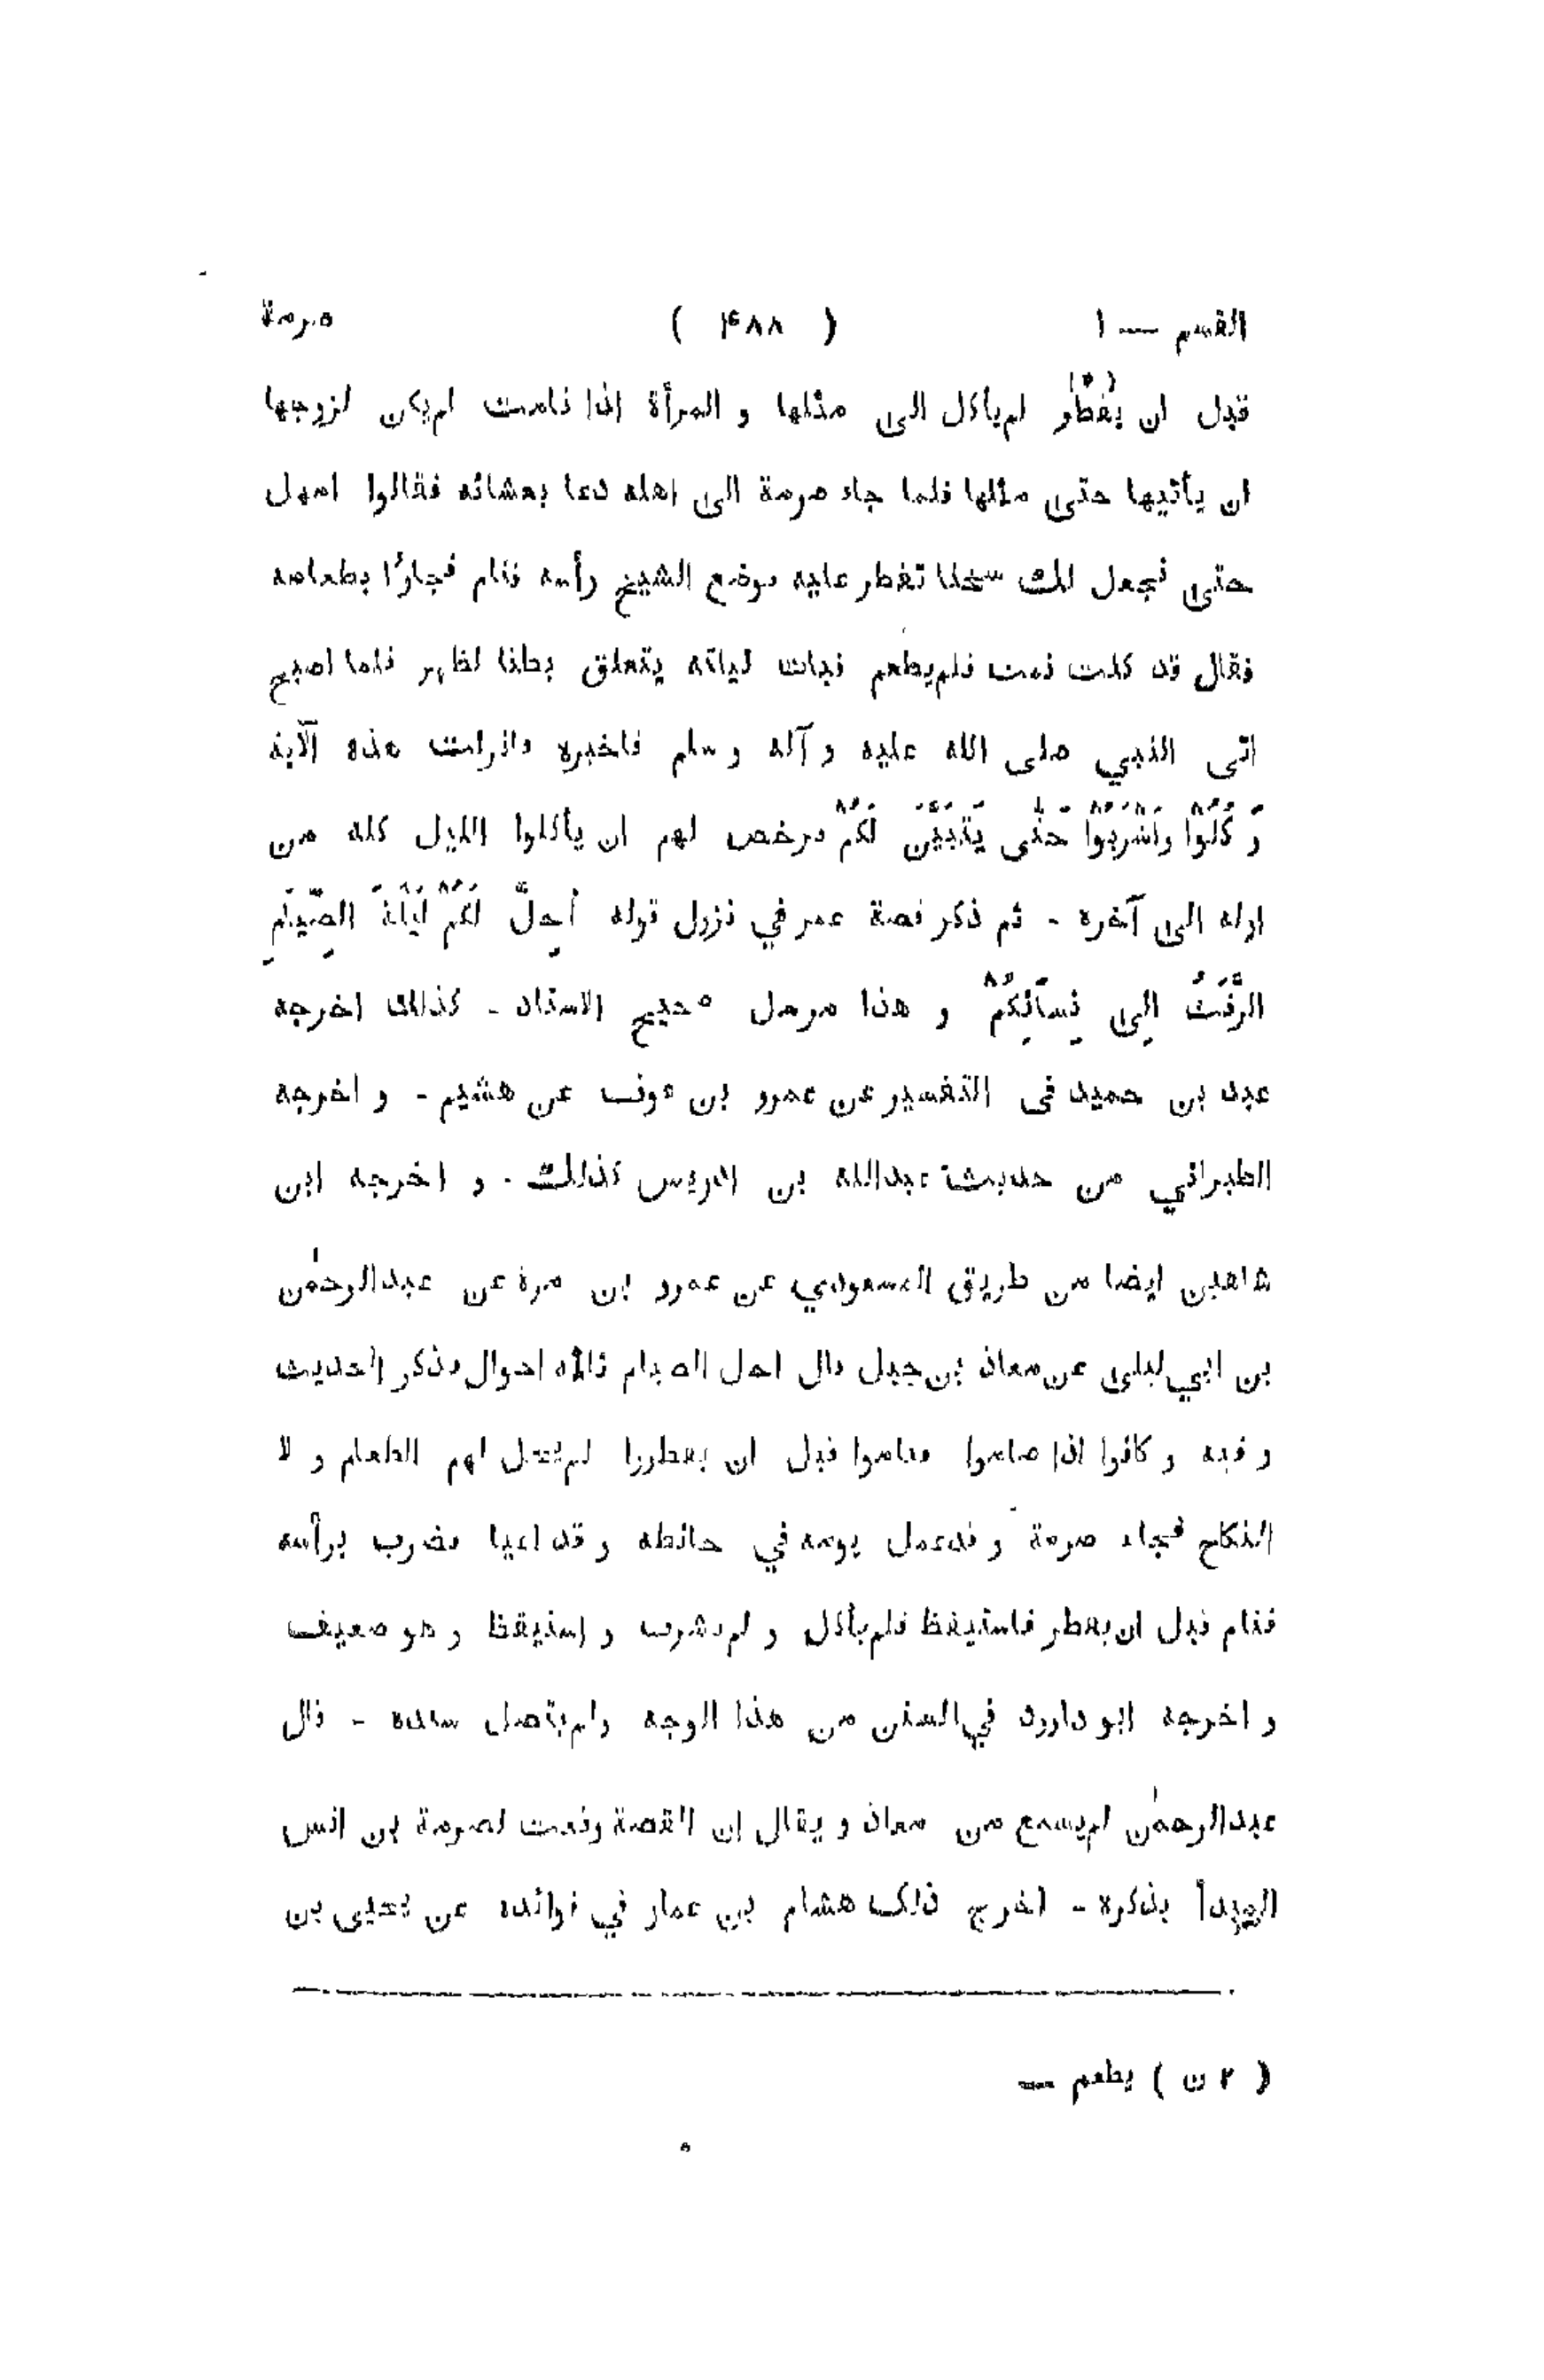 القسم — ١ ( ۴٨٨ ) صرمة
قبل ان يُفْطَر (٢) لم يأكل الى مثلها و المرأة اذا نامت لم يكن لزوجها
ان يأتيها حتى مثلها فلما جاء صرمة الى اهله دعا بعشائه فقالوا امهل
حتى نجعل لك سخنا تفطر عليه فوضع الشيخ رأسه فنام فجاؤا بطعامه
فقال قد كنت نمت فلم يطعم فبات ليلته يتعلق بطنا لظهر فلما اصبح
اتى النبي صلى الله عليه و آله و سلم فاخبره فانزلت هذه الآية
وَ كُلُوْا وَاشْرَبُوْا حَتّٰى يَتَبَيَّنَ لَكُمْ فرخص لهم ان يأكلوا الليل كله من
اوله الى آخره - ثم ذكر قصة عمر في نزول قوله أُحِلَّ لَكُمْ لَيْلَةَ الصِّيَامِ
الرَّفَثُ اِلٰى نِسَآئِكُمْ و هذا مرسل صحيح الاسناد - كذلك اخرجه
عبد بن حميد فى التفسير عن عمرو بن عوف عن هشيم - و اخرجه
الطبراني من حديث عبدالله بن ادريس كذلك - و اخرجه ابن
شاهين ايضا من طريق المسعودي عن عمرو بن مرة عن عبدالرحمٰن
بن ابي ليلى عن معاذ بن جبل قال احل الصيام ثلاثة احوال فذكر الحديث
و فيه و كانوا اذا صاموا فناموا قبل ان يفطروا لم يحل لهم الطعام و لا
النكاح فجاء صرمة و قد عمل يومه في حائطه و قد اعيا فضرب برأسه
فنام قبل ان يفطر فاستيقظ فلم يأكل و لم يشرب و استيقظ و هو ضعيف
و اخرجه ابو داوود في السنن من هذا الوجه و لم يتصل سنده - فان
عبدالرحمٰن لم يسمع من معاذ و يقال ان القصة وقعت لصرمة بن انس
المبدأ بذكره - اخرج ذلك هشام بن عمار في فوائده عن يحيى بن
( ٢ ن ) يطعم —